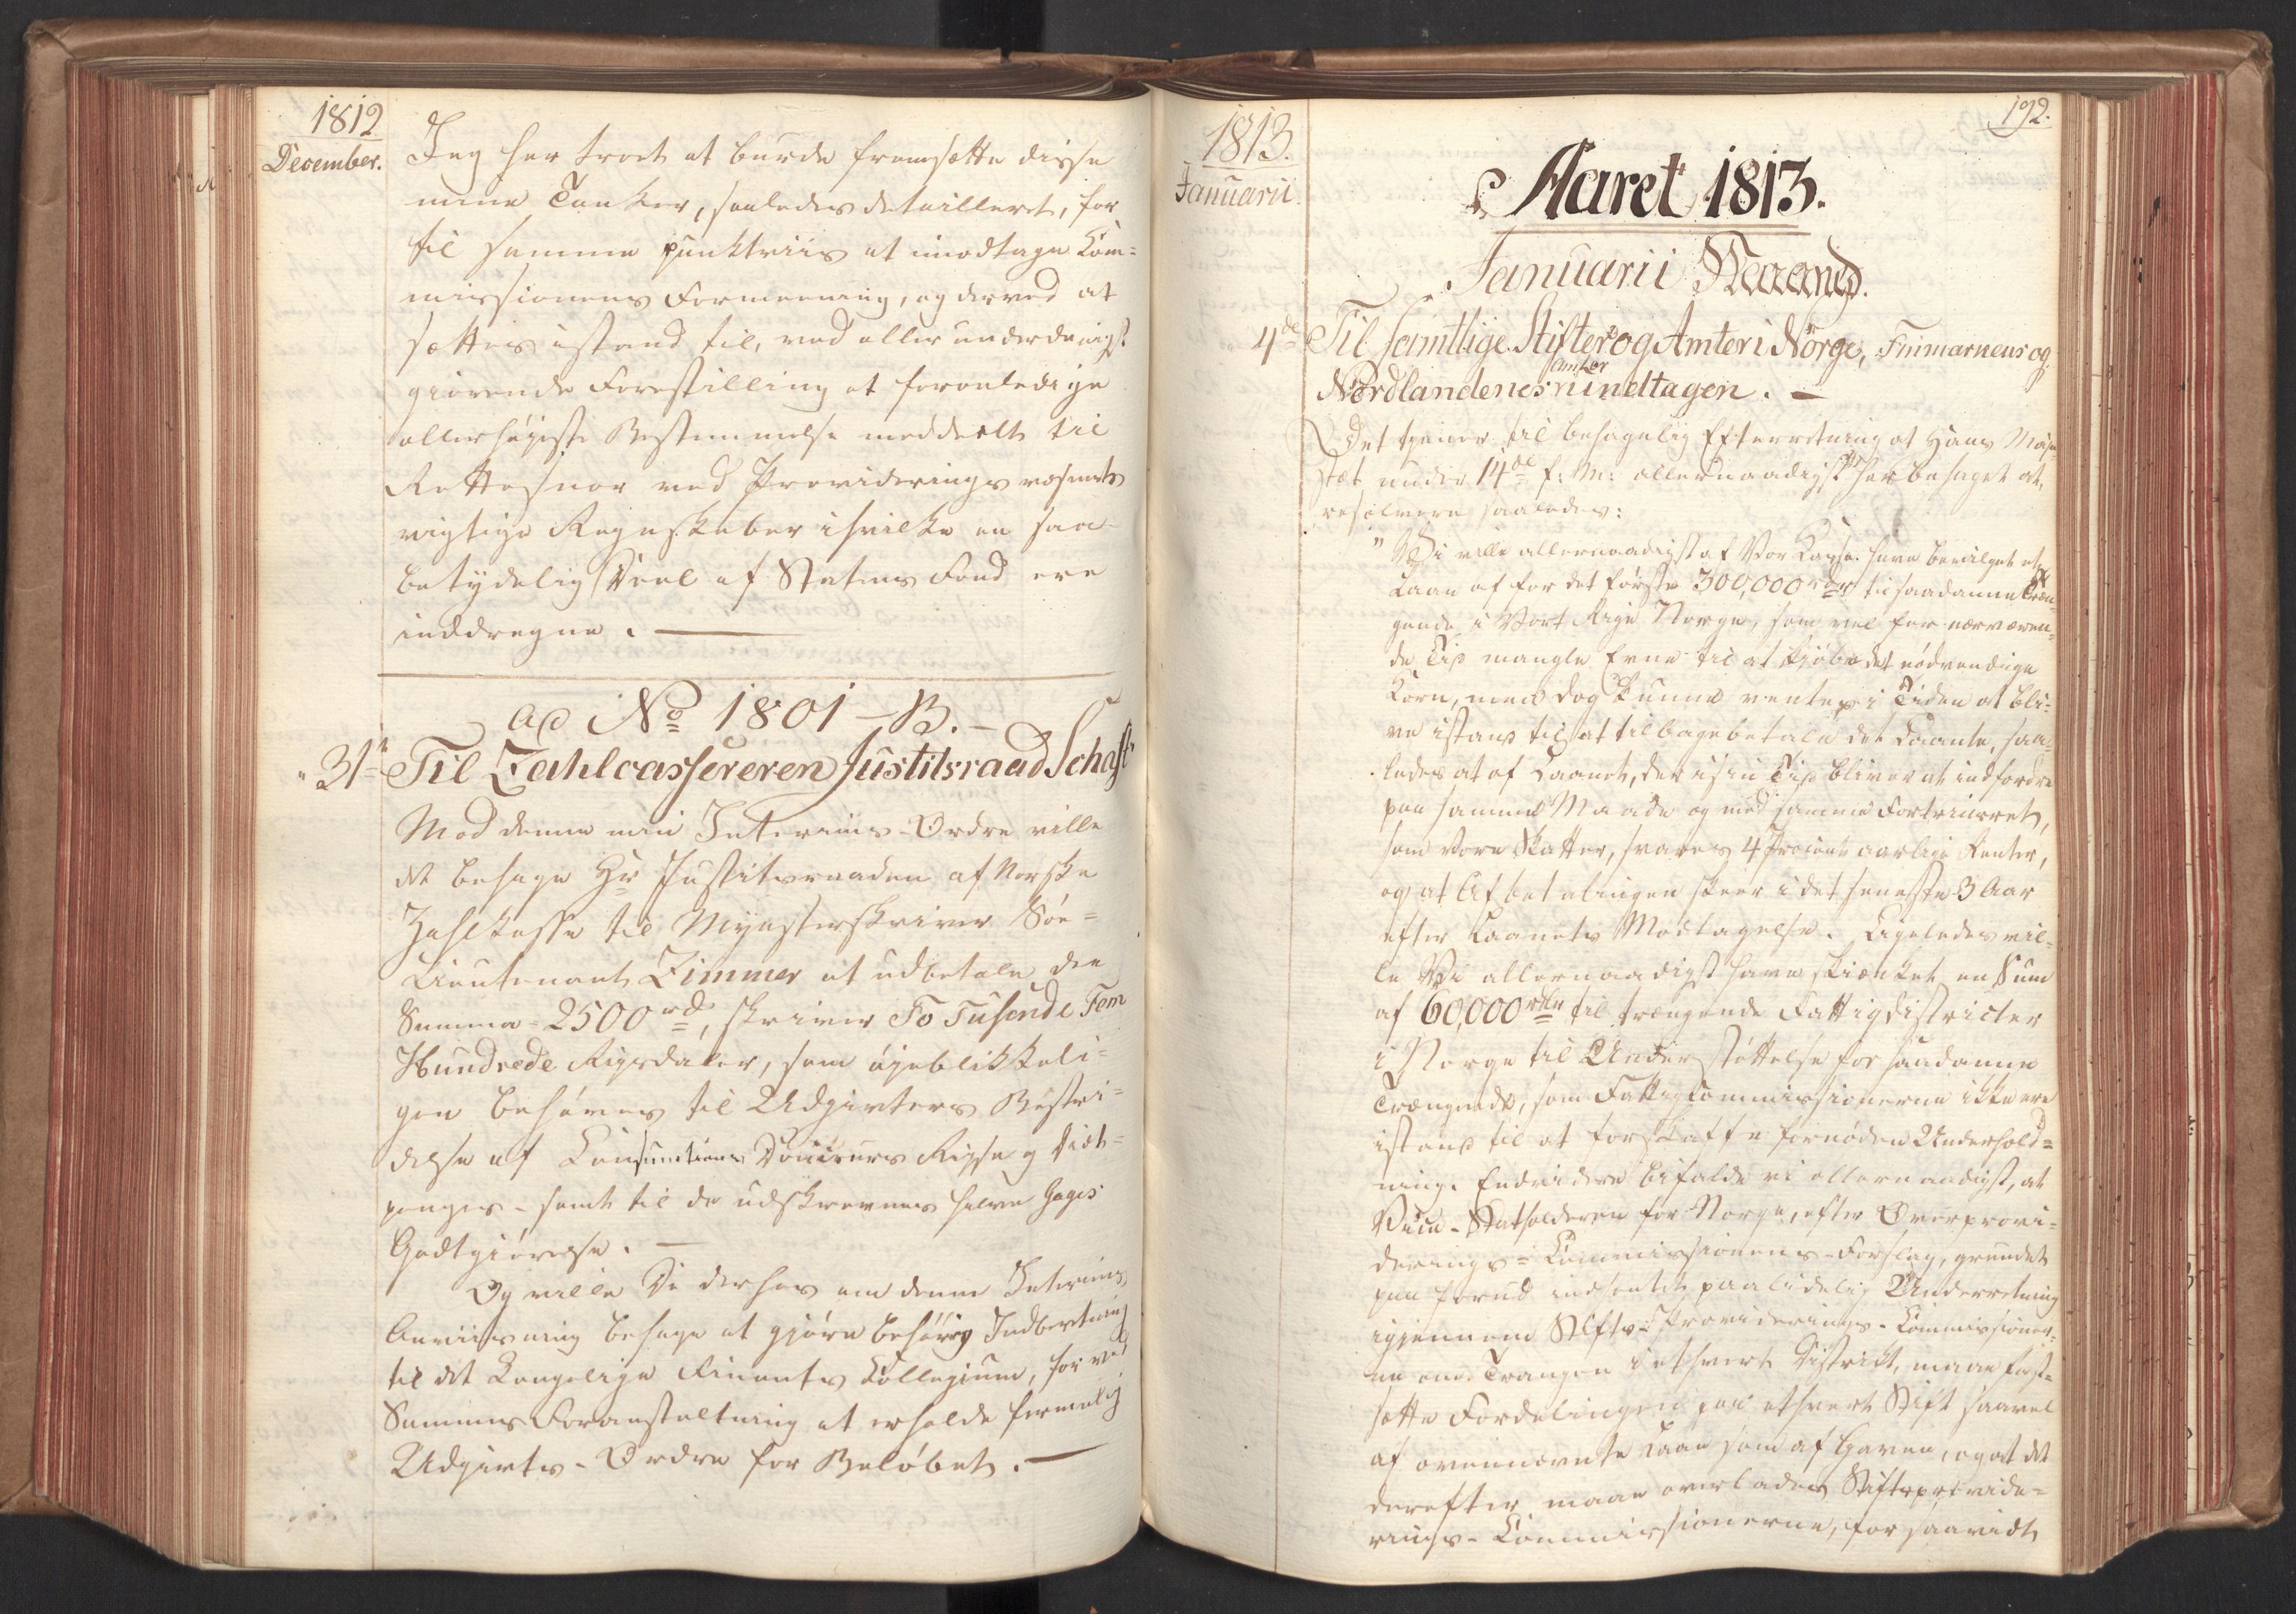 1812
December.
Jeg har troet at burde fremsætte disse
mine Tanker, saaledes detailleret, for
til samme punktviis at imodtage Com=
missionens Formeening, og derved at
sættes istand til, ved allerunderdanigst
giørende Forestilling at foranledige
allerhøieste Bestemmelse meddeelt til
Rettesnor ved Provideringsvæsenets
vigtige Regnskaber ihvilke en saa
betydelig Deel af Statens Fond ere
inddragne. —
ad No 1801 - B. -
31te Til Zahlcassereren Justitsraad Schaft
Mod denne min Interims-Ordre ville
det behage Hr Justitsraaden af Norske
Zahlkasse til Mynsterskriver Søe=
Lieutenant Zimmer at udbetale den
Summa 2500 rd, skriver To Tusende Fem
Hundrede Rigsdaler, som øjeblikkeli=
gen behøves til Udgivters Bestri=
delse af Consumtions Douceurs Reise og Diæt=
penges - samt til de udskrevnes halve Gages
Godtgiørelse. —
Og ville De derhos om denne Interims
Anviisning behage at gjøre behørig Indberetning
til det Kongelige Finants Collegium, for ved
Sammes Foranstaltning at erholde formelig
Udgivts-Ordre for Beløbet. —
1813.
Januarii
192.
Aaret 1813.
Januarii Maaned.
4de Til samtlige Stifter og Amter i Norge, Finmarkens og
Amter
Nordlandenes undtagen. —
Det tjener til behagelig Efterretning at Hans Maje=
stæt under 14de f: M: allernaadigst har behaget at
resolvere saaledes:
" Vi ville allernaadigst af Vor Kasse have bevilget et
Laan af for det første 300,000 rdr til saadanne Træn=
gende i Vort Rige Norge, som vel for nærværen=
de Tid mangle Evne til at kjøbe det nødvendige
Korn, men dog kunne ventes i Tiden at bli=
ve istand til at tilbagebetale det Laante, saa=
ledes at af Laanet, der i sin Tid bliver at indfordre
paa samme Maade og med samme Fortrinsret,
som Vore Skatter, svares 4 Procent aarlige Renter,
og at Afbetalingen skeer i det seneste 3 Aar
efter Laanets Modtagelse. Ligeledes vil=
le Vi allernaadigst have skienket en Sum
af 60,000 rdlr til trængende Fattigdistricter
i Norge til Understøttelse for saadanne
Trængende, som Fattigcommissionerne ikke ere
istand til at forskaffe fornøden Underhold=
ning. Endvidere bifalde vi allernaadigst, at
Vice-Statholderen for Norge, efter Overprovi=
derings=Commissionens-Forslag, grundet
paa forud indhentet paalidelig Underretning
igjennem Stifts-Providerings-Commissioner=
ne om Trangen i ethvert District, maae fast=
sætte Fordelingen paa ethvert Stift saavel
af ovennævnte Laan som af Gaven, og at det
derefter maae overlades Stiftsprovide=
rings-Commissionerne, for saavidt